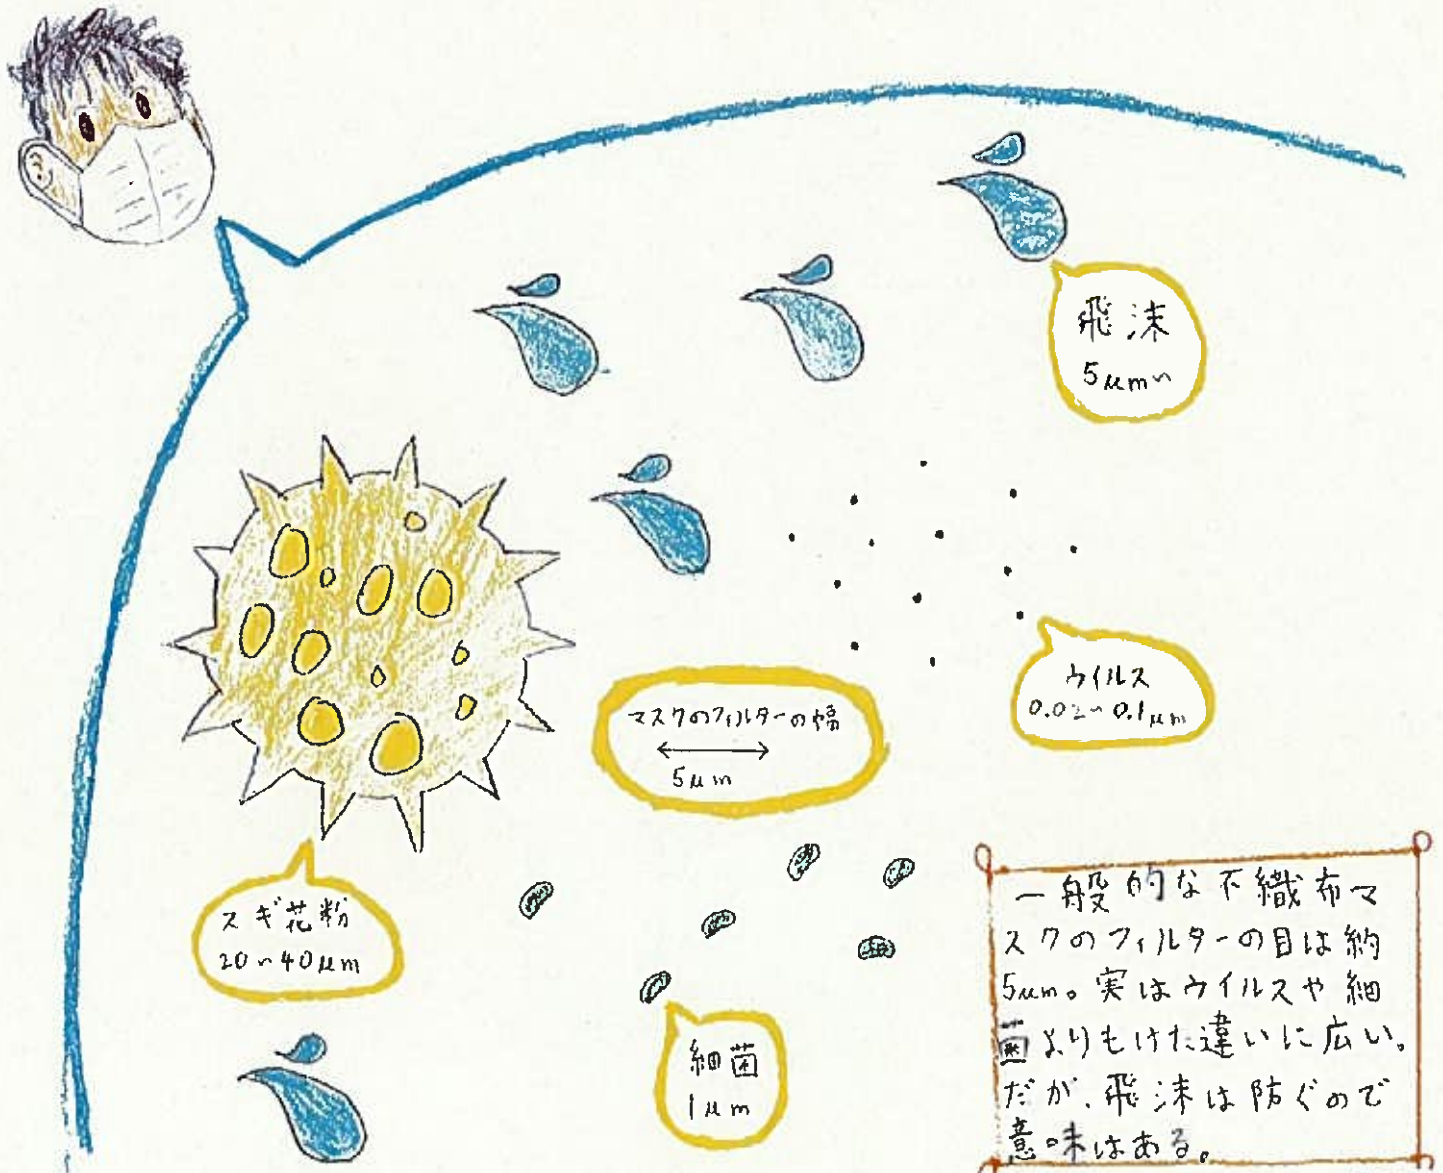 飛沫
5μm～
ウイルス
0.02～0.1μm
マスクのフィルターの幅
5μm
スギ花粉
20～40μm
細菌
1μm
一般的な不織布マ
スクのフィルターの目は約
5μm。実はウイルスや細
菌よりもけた違いに広い。
だが、飛沫は防ぐので
意味はある。